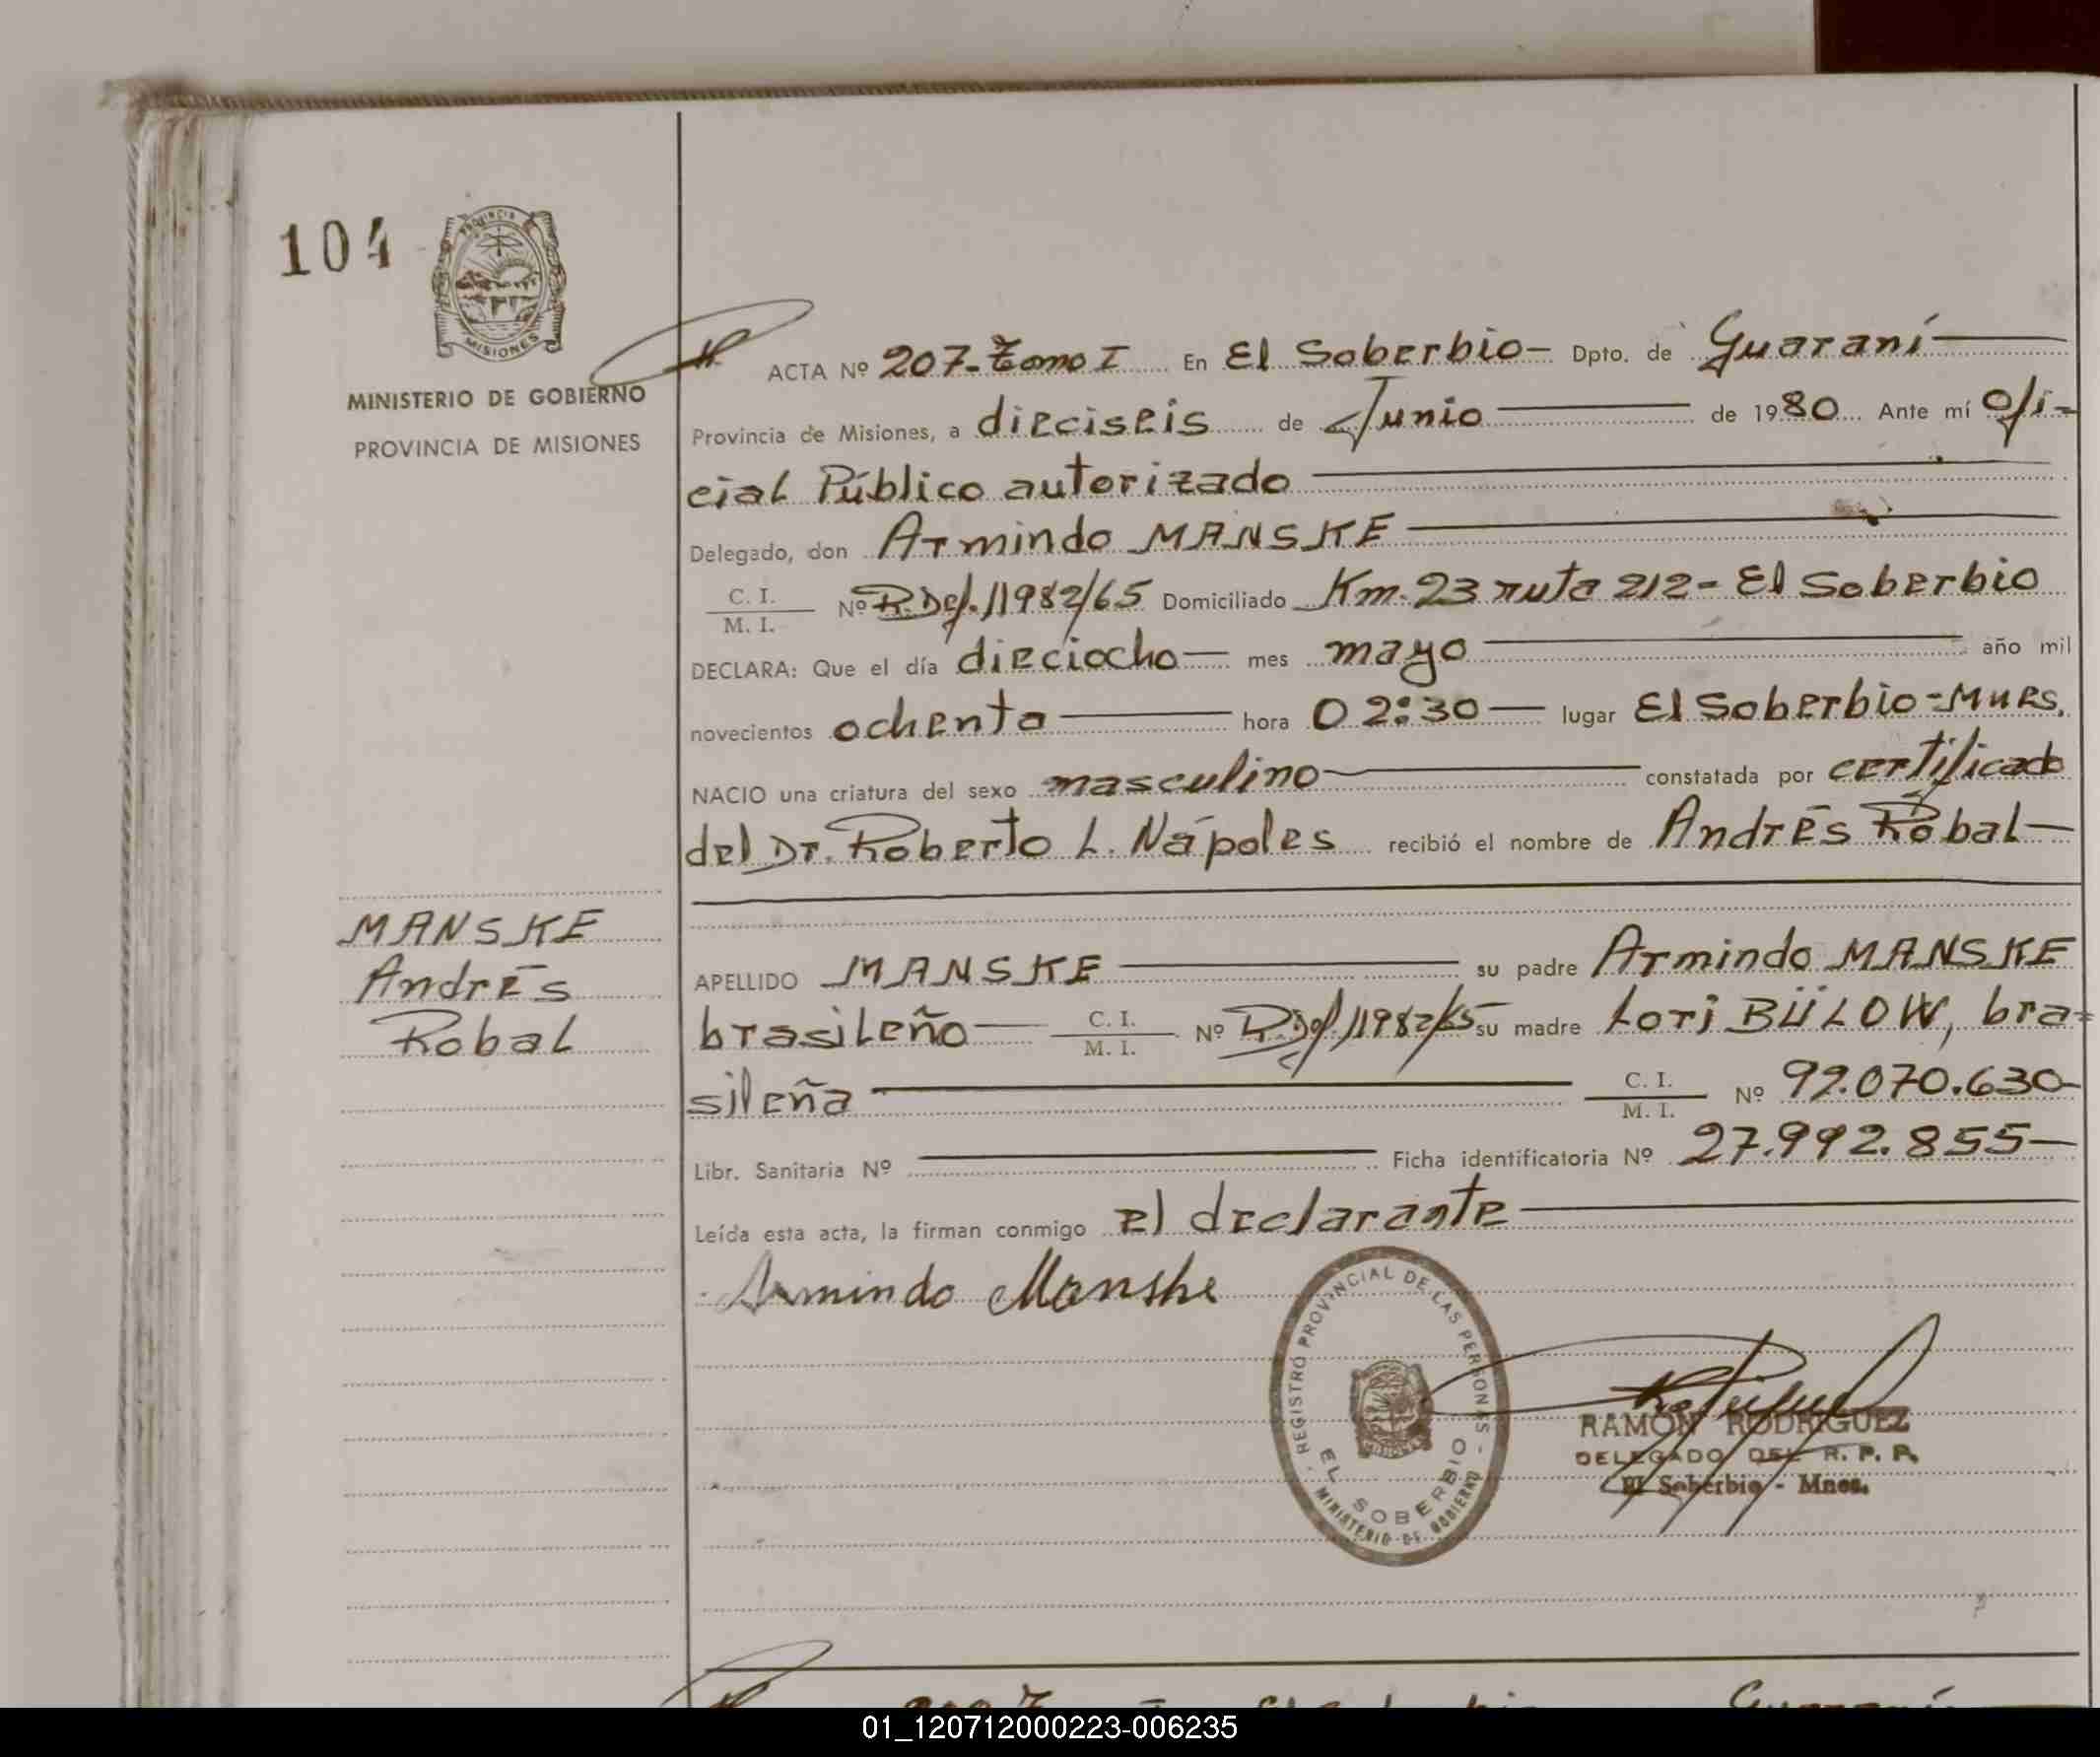 104
PROVINCIA
MISIONES
MINISTERIO DE GOBIERNO
PROVINCIA DE MISIONES
ACTA Nº 207-Tomo I En El Soberbio- Dpto. de Guaraní
Provincia de Misiones, a dieciseis de Junio de 1980 Ante mí Ofi-
cial Público autorizado
Delegado, don Armindo MANSKE
C. I.
M. I. Nº R.Def.11982/65 Domiciliado Km. 23 ruta 212-El Soberbio
DECLARA: Que el día dieciocho mes mayo año mil
novecientos ochenta hora 02:30 lugar El Soberbio-Mnes.
NACIO una criatura del sexo masculino constatada por certificado
del Dr. Roberto L. Nápoles recibió el nombre de Andrés Robal
MANSKE
Andrés
Robal
APELLIDO MANSKE su padre Armindo MANSKE
brasileño C. I.
M. I. Nº R.Def.11982/65 su madre Lori BÜLOW, bra-
sileña C. I.
M. I. Nº 92.070.630
Libr. Sanitaria Nº Ficha identificatoria Nº 27.992.855
Leída esta acta, la firman conmigo el declarante
Armindo Manske
REGISTRO PROVINCIAL DE LAS PERSONAS -
EL SOBERBIO
MINISTERIO DE GOBIERNO
RAMON RODRIGUEZ
DELEGADO DEL R. P. P.
El Soberbio - Mnes.
01_120712000223-006235